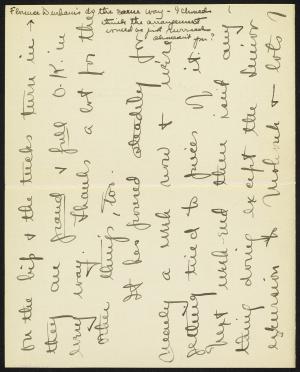 Florence Durham's do the same way - I should
think the arrangement
would as just
shouldn't you?
on the hip & the tucks turn in →
they are grand & full O.K. in
every way. Thanks a lot for the
other things, too.
It has poured steadily for
nearly a week now & we're
getting tired to pieces of it.
Next week-end there isn't any
thing doing except the Senior
excursion to Mohonk & lots